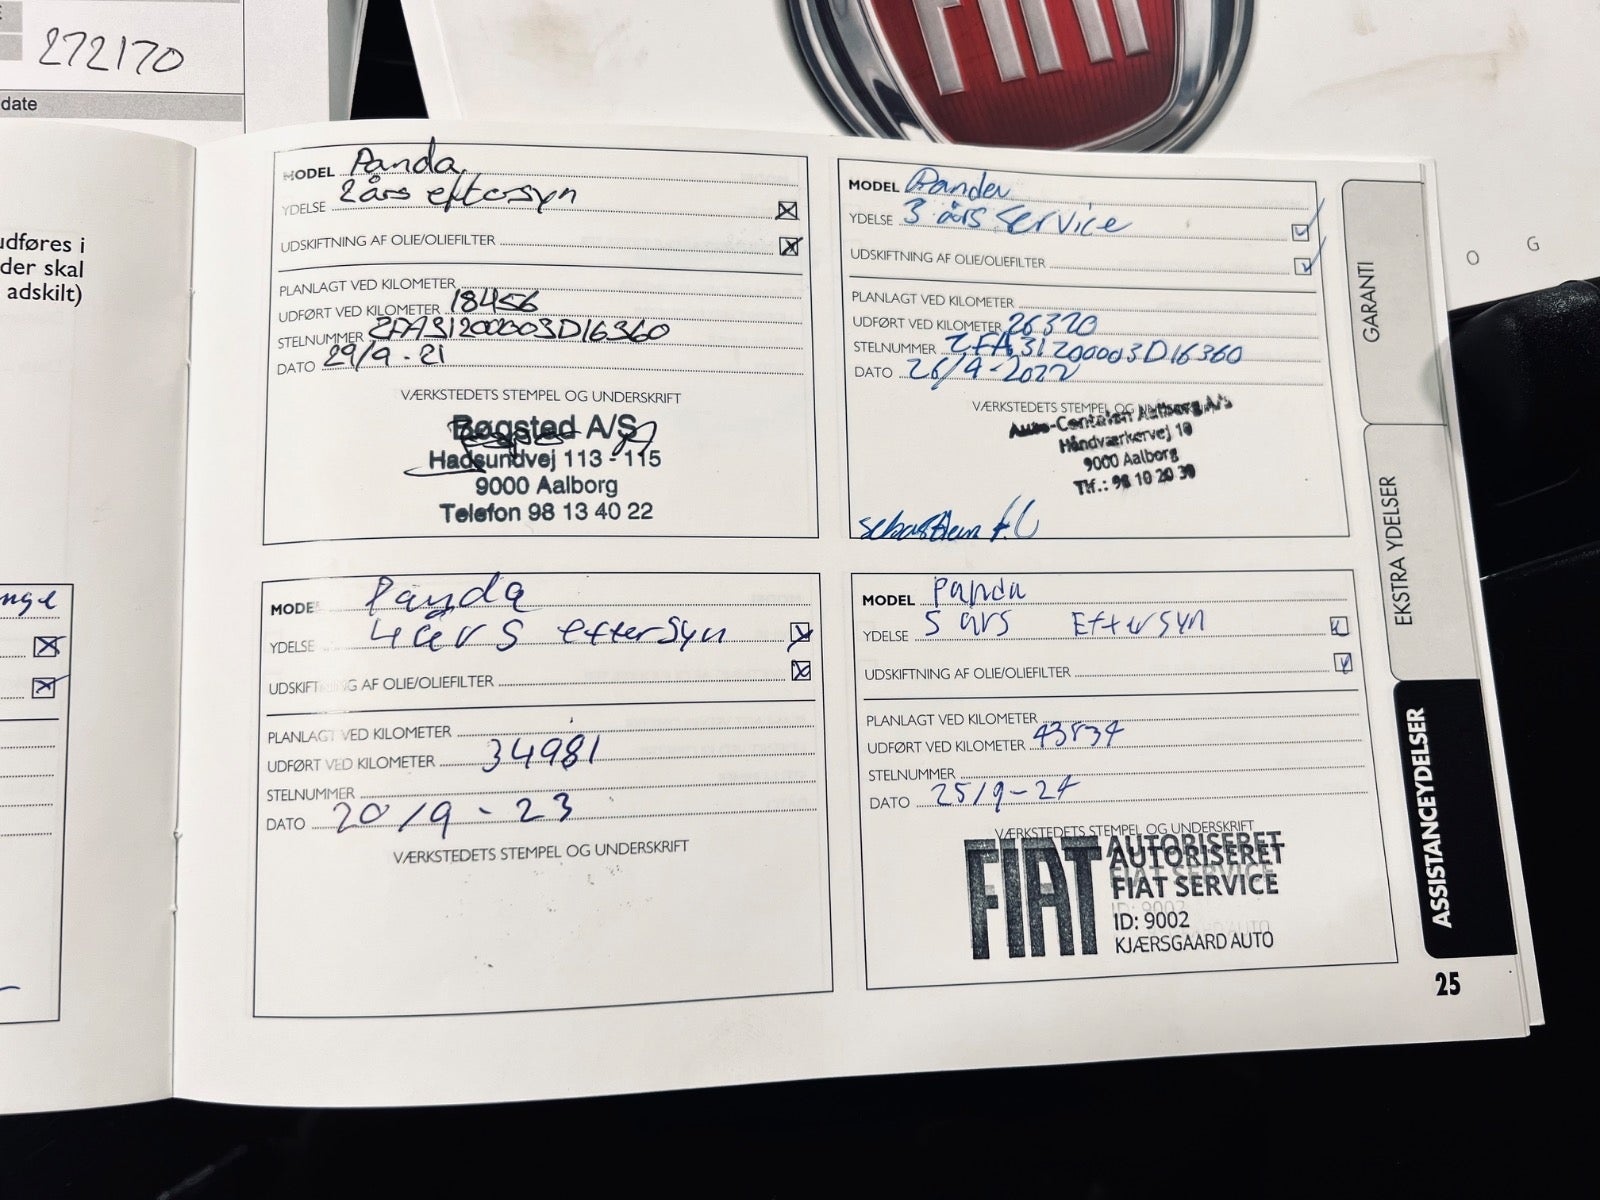 272170
date
FIAT
O G
udføres i
der skal
adskilt)
nge
MODEL Panda
YDELSE 2 års eftersyn
UDSKIFTNING AF OLIE/OLIEFILTER
PLANLAGT VED KILOMETER
UDFØRT VED KILOMETER 18456
STELNUMMER ZFA31200003D16360
DATO 29/9-21
VÆRKSTEDETS STEMPEL OG UNDERSKRIFT
Bøgsted A/S
Hadsundvej 113 - 115
9000 Aalborg
Telefon 98 13 40 22
MODEL Panda
YDELSE 3 års service
UDSKIFTNING AF OLIE/OLIEFILTER
PLANLAGT VED KILOMETER
UDFØRT VED KILOMETER 26320
STELNUMMER ZFA31200003D16360
DATO 26/9-2022
VÆRKSTEDETS STEMPEL OG
Auto-Centralen Aalborg A/S
Håndværkervej 10
9000 Aalborg
Tlf.: 98 10 20 30
MODE
Panda
YDELSE 4 års eftersyn
UDSKIFT NG AF OLIE/OLIEFILTER
PLANLAGT VED KILOMETER
UDFØRT VED KILOMETER 34981
STELNUMMER
DATO 20/9-23
VÆRKSTEDETS STEMPEL OG UNDERSKRIFT
MODEL Panda
YDELSE 5 års Eftersyn
UDSKIFTNING AF OLIE/OLIEFILTER
PLANLAGT VED KILOMETER
UDFØRT VED KILOMETER
STELNUMMER
DATO 25/9-24
VÆRKSTEDETS STEMPEL OG UNDERSKRIFT
FIAT AUTORISERET
AUTORISERET
FIAT SERVICE
ID: 9002
KJÆRSGAARD AUTO
GARANTI
EKSTRA YDELSER
ASSISTANCEYDELSER
25